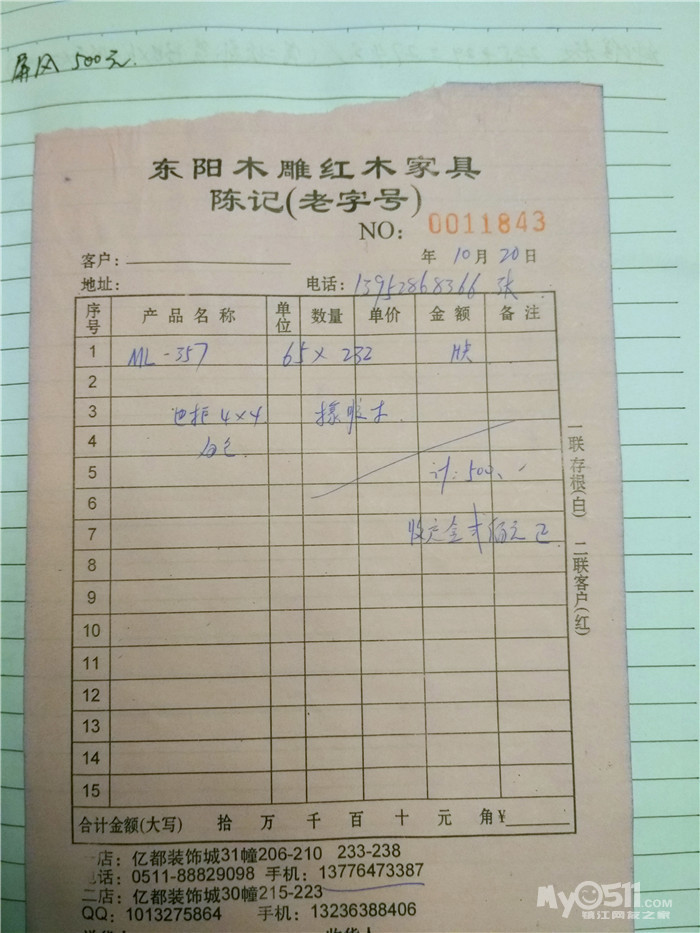 屏风 500元.
东阳木雕红木家具
陈记(老字号)
NO: 0011843
客户: 年 10月 20日
地址: 电话: 13952868366 张
序号 产品名称 单位 数量 单价 金额 备注
1 ML-357 65×232
2
3 4×4 橡胶木
4 白色
5 计:500.
6
7 收定金 元
8
9
10
11
12
13
14
15
合计金额(大写) 拾 万 千 百 十 元 角¥
一联存根(白) 二联客户(红)
一店: 亿都装饰城31幢206-210 233-238
电话: 0511-88829098 手机: 13776473387
二店: 亿都装饰城30幢215-223
QQ: 1013275864 手机: 13236388406
My0511.com
镇江网友之家